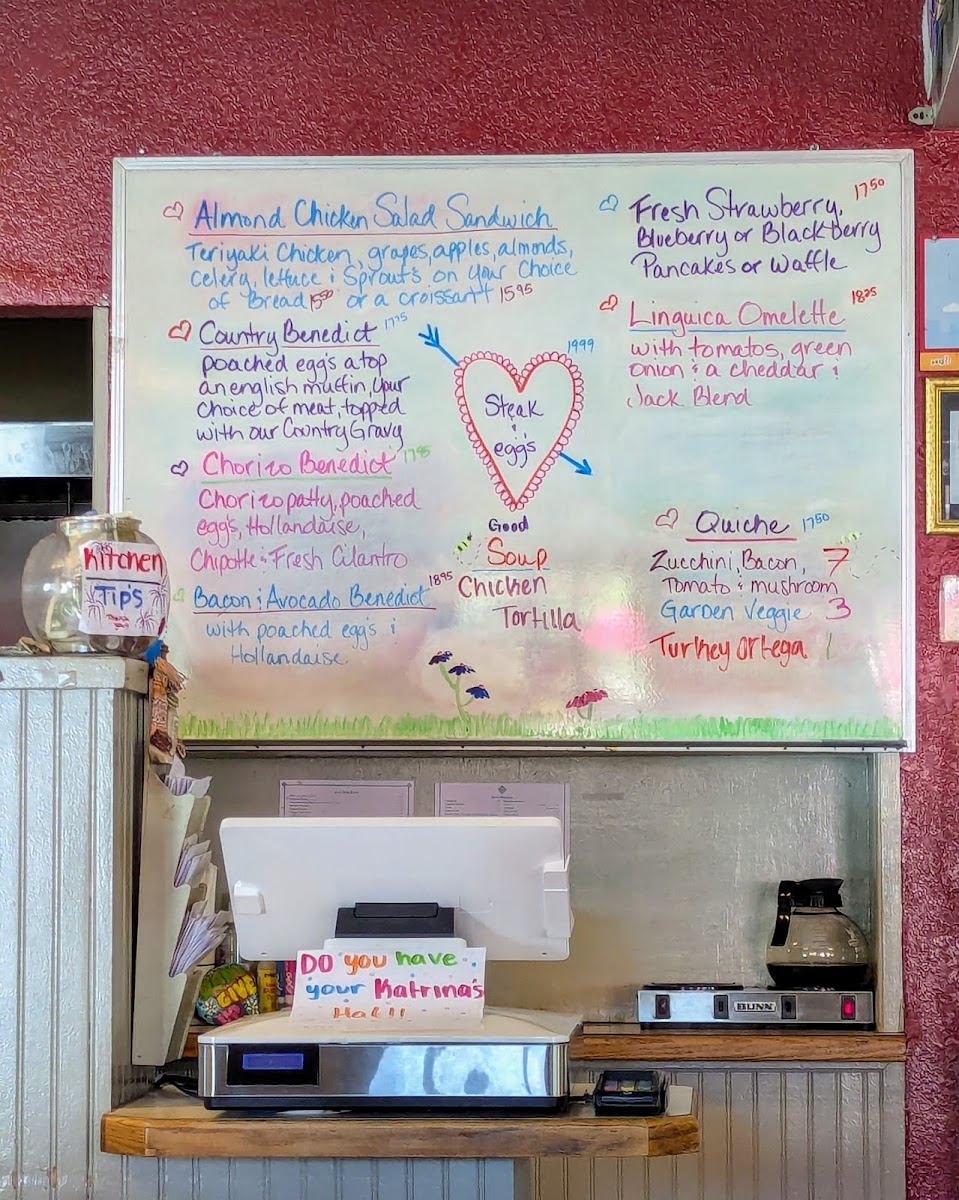 Almond Chicken Salad Sandwich
Teriyaki Chicken, grapes, apples, almonds,
celery, lettuce & Sprouts on your choice
of Bread 15⁵⁰ or a croissant 15⁹⁵
Country Benedict
poached egg's atop
an english muffin, your
choice of meat, topped
with our Country Gravy
Chorizo Benedict 17⁹⁵
Chorizo patty, poached
egg's, Hollandaise,
Chipotle & Fresh Cilantro
Bacon & Avocado Benedict 18⁹⁵
with poached egg's &
Hollandaise
19⁹⁹
Steak
&
egg's
Good
Soup
Chicken
Tortilla
Fresh Strawberry, 17⁵⁰
Blueberry or Blackberry
Pancakes or Waffle
Linguica Omelette 18²⁵
with tomatos, green
onion & a cheddar &
Jack Blend
Quiche 17⁵⁰
Zucchini, Bacon, 7
Tomato & mushroom
Garden Veggie 3
Turkey Ortega 1
Kitchen
Tips
DO you have
your Katrina's
Hat!!
BUNN